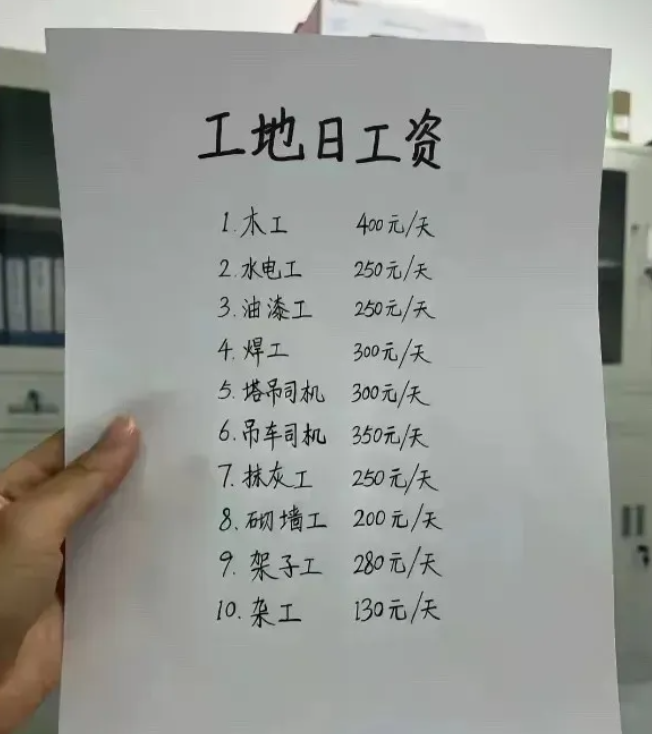 工地日工资
1.木工 400元/天
2.水电工 250元/天
3.油漆工 250元/天
4.焊工 300元/天
5.塔吊司机 300元/天
6.吊车司机 350元/天
7.抹灰工 250元/天
8.砌墙工 200元/天
9.架子工 280元/天
10.杂工 130元/天